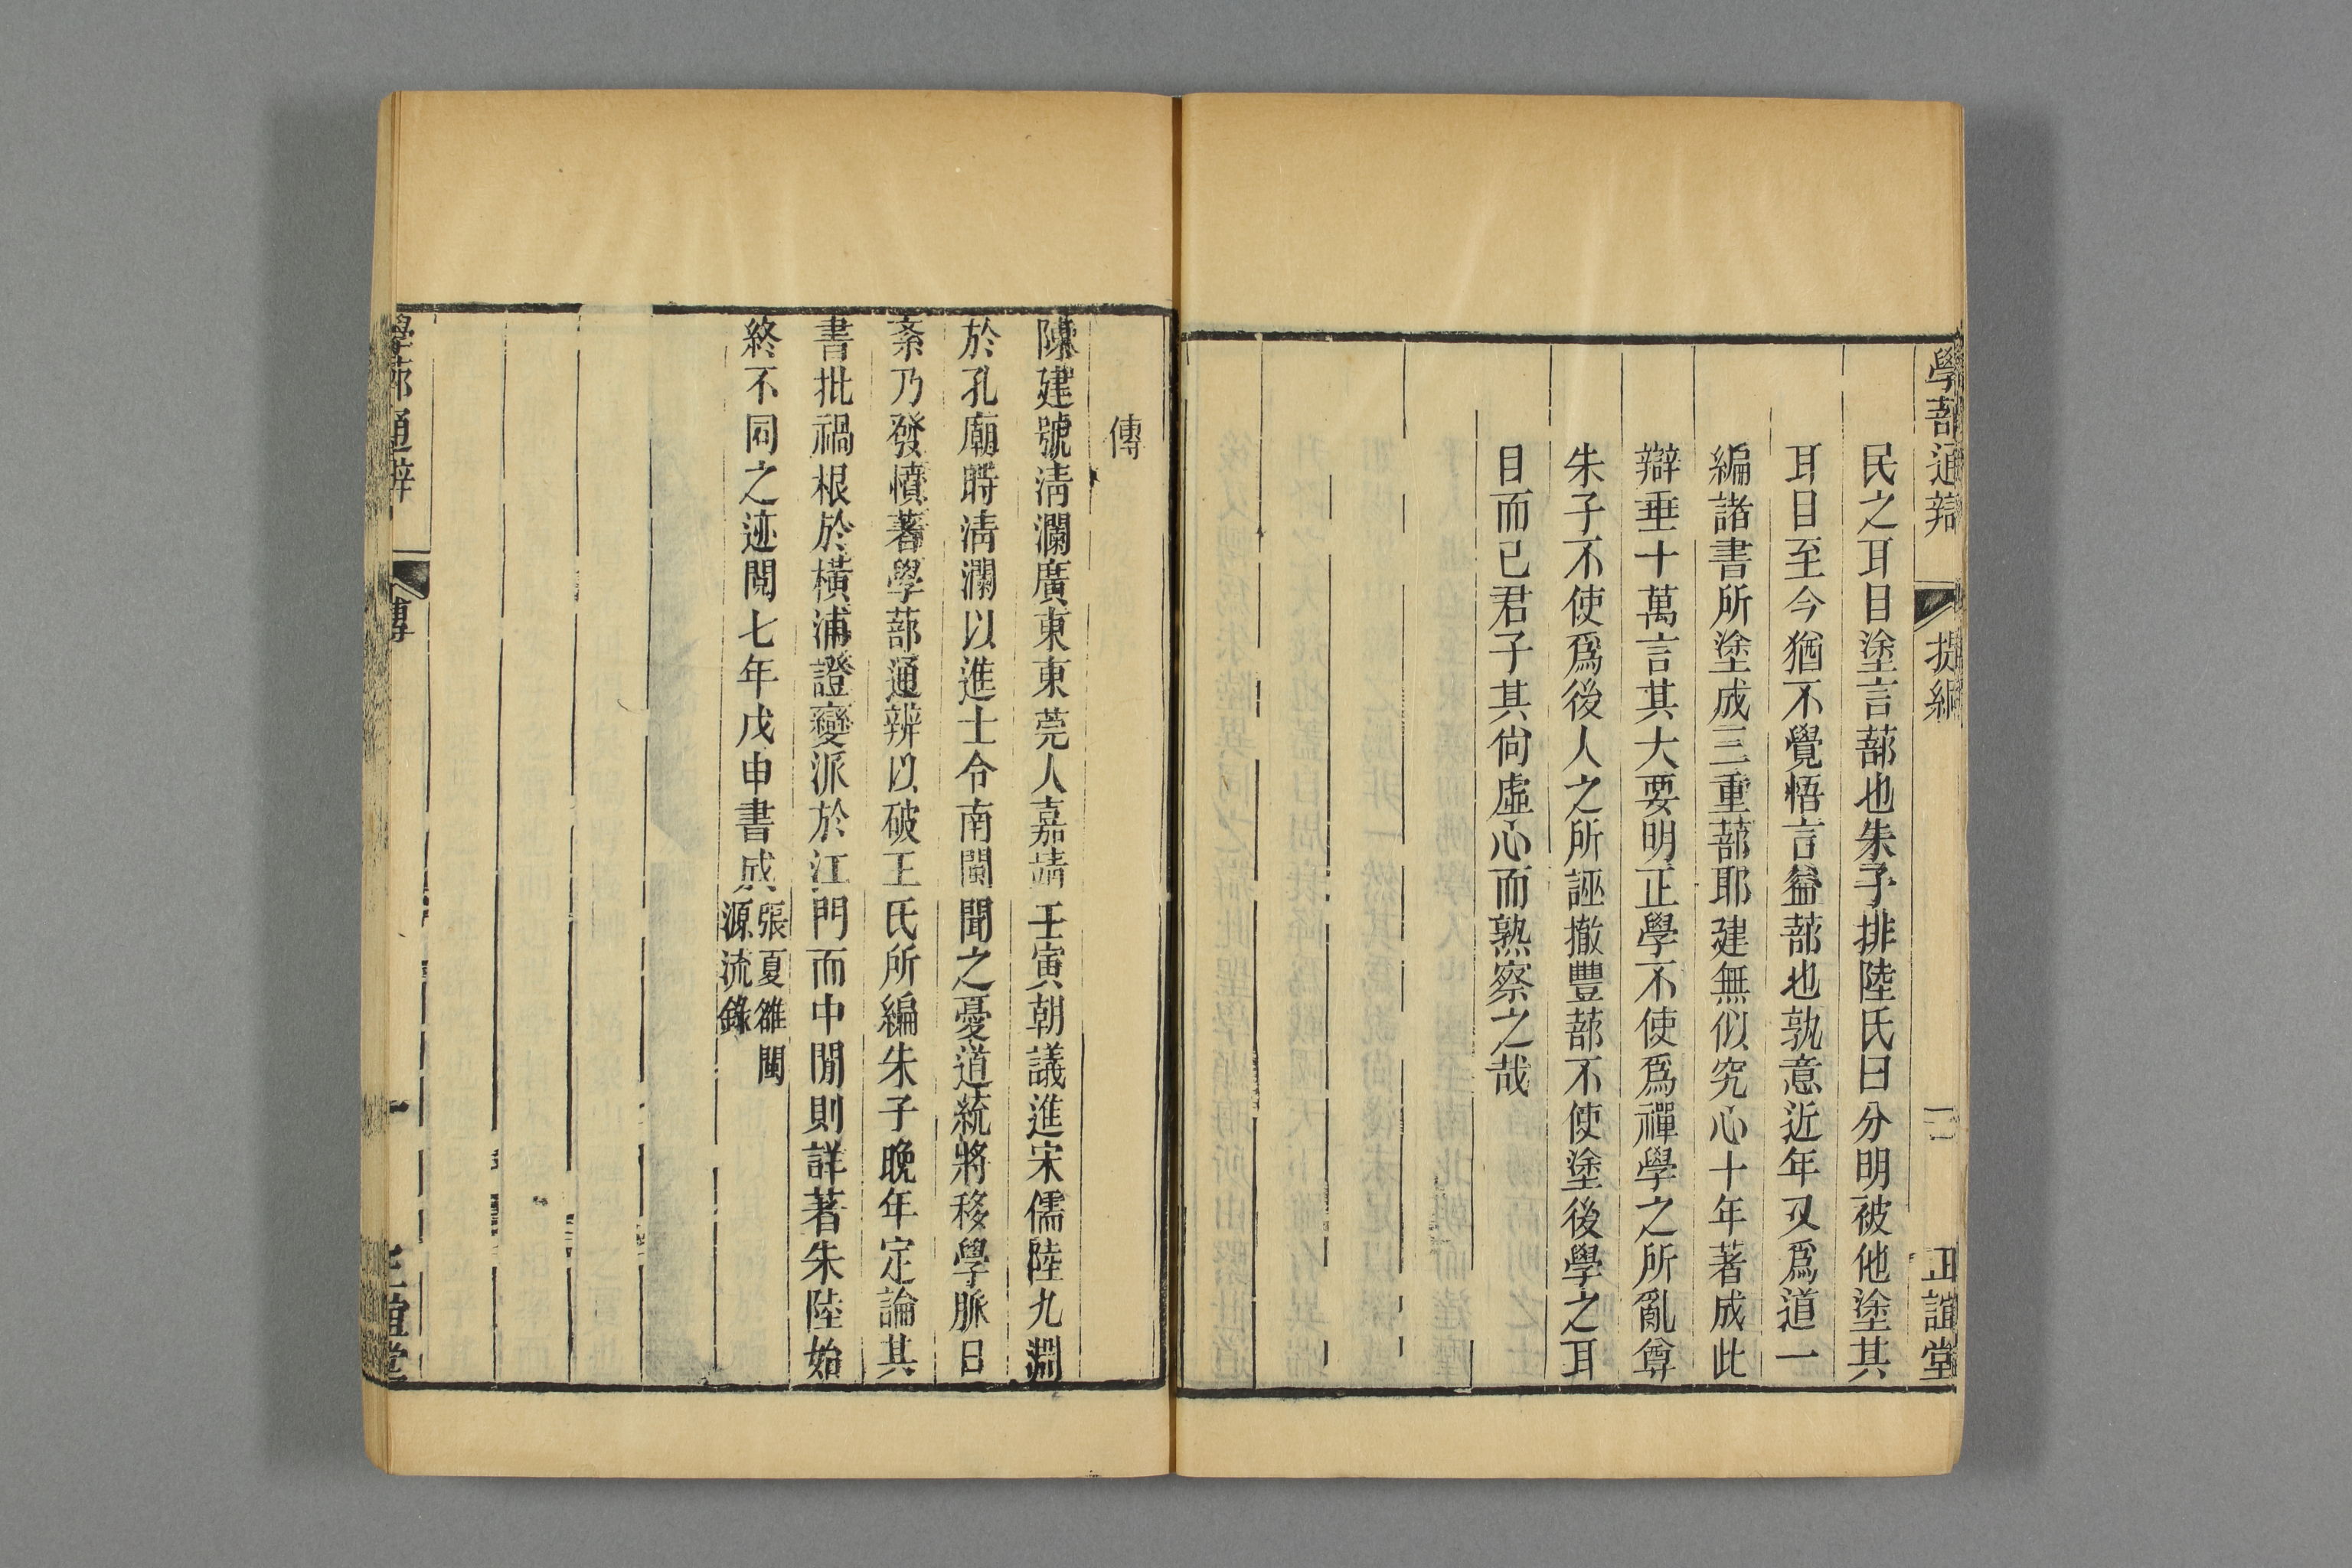 學蔀通辯
提綱
二
正誼堂
民之耳目塗言蔀也朱子排陸氏曰分明被他塗其
耳目至今猶不覺悟言益蔀也孰意近年又爲道一
編諸書所塗成三重蔀耶建無似究心十年著成此
辯垂十萬言其大要明正學不使爲禪學之所亂尊
朱子不使爲後人之所誣撤豐蔀不使塗後學之耳
目而已君子其尙虛心而熟察之哉
傳
陳建號淸瀾廣東東莞人嘉靖壬寅朝議進宋儒陸九淵
於孔廟時淸瀾以進士令南閩聞之憂道統將移學脈日
紊乃發憤著學蔀通辨以破王氏所編朱子晚年定論其
書批禍根於橫浦證變派於江門而中閒則詳著朱陸始
終不同之迹閱七年戊申書成
張夏雒閩
源流錄
學蔀通辨
傳
一
正誼堂